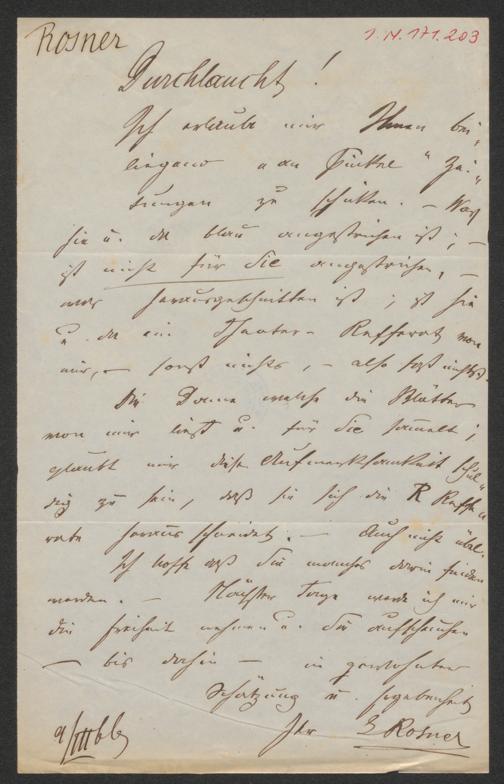 Rosner
I. N. 171.203
Durchlaucht!
Ich erlaube mir Ihnen bei-
liegend " Zei-
tungen zu schicken. — Was
hie u. da blau angestrichen ist; —
ist nicht für Sie angestrichen, —
was herausgeschnitten ist; ist hie
u. da ein Theater-Refferat von
mir, — sonst nichts, — also fast nichts.
Die Dame welche die Blätter
von mir liest u. für Sie sammelt;
glaubt mir diese Aufmerksamkeit schul-
dig zu sein, daß sie sich die Reffe-
rate herausschneidet. — Auch nicht übel.
Ich hoffe daß Sie manches darin finden
werden. — Nächster Tage werde ich mir
die Freiheit nehmen u. Sie aufsuchen
— bis dahin — in gewohnter
Schätzung u. Ergebenheit
Ihr Rosner
9/III